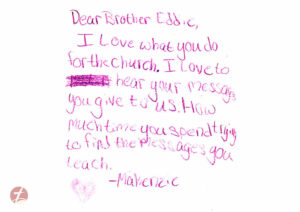 Dear Brother Eddie,
I Love what you do
for the church. I Love to
hear your messages
you give to us. How
much time you spend trying
to find the messages you
teach.
-Makenzie